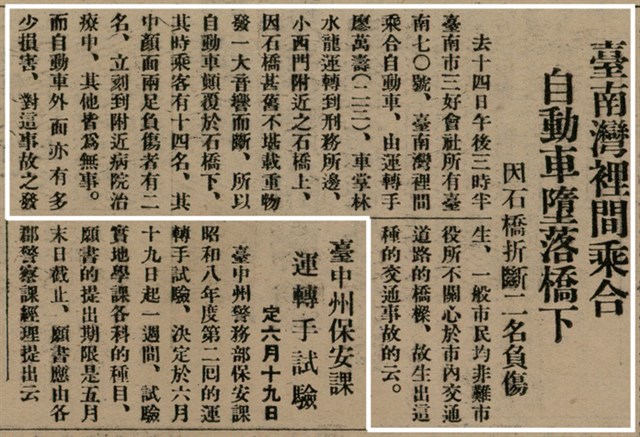 臺南灣裡間乘合
自動車墮落橋下
因石橋折斷二名負傷
去十四日午後三時半
臺南市三好會社所有臺
南七〇號、臺南灣裡間
乘合自動車、由運轉手
廖萬壽(二二)、車掌林
水龍運轉到刑務所邊、
小西門附近之石橋上、
因石橋甚舊不堪載重物
發一大音響而斷、所以
自動車顛覆於石橋下、
其時乘客有十四名、其
中顏面兩足負傷者有二
名、立刻到附近病院治
療中、其他皆為無事。
而自動車外面亦有多
少損害、對這事故之發
生、一般市民均非難市
役所不關心於市內交通
道路的橋樑、故生出這
種的交通事故的云。
臺中州保安課
運轉手試驗
定六月十九日
臺中州警務部保安課
昭和八年度第二回的運
轉手試驗、決定於六月
十九日起一週間、試驗
實地學課各科的種目、
願書的提出期限是五月
末日截止、願書應由各
郡警察課經理提出云